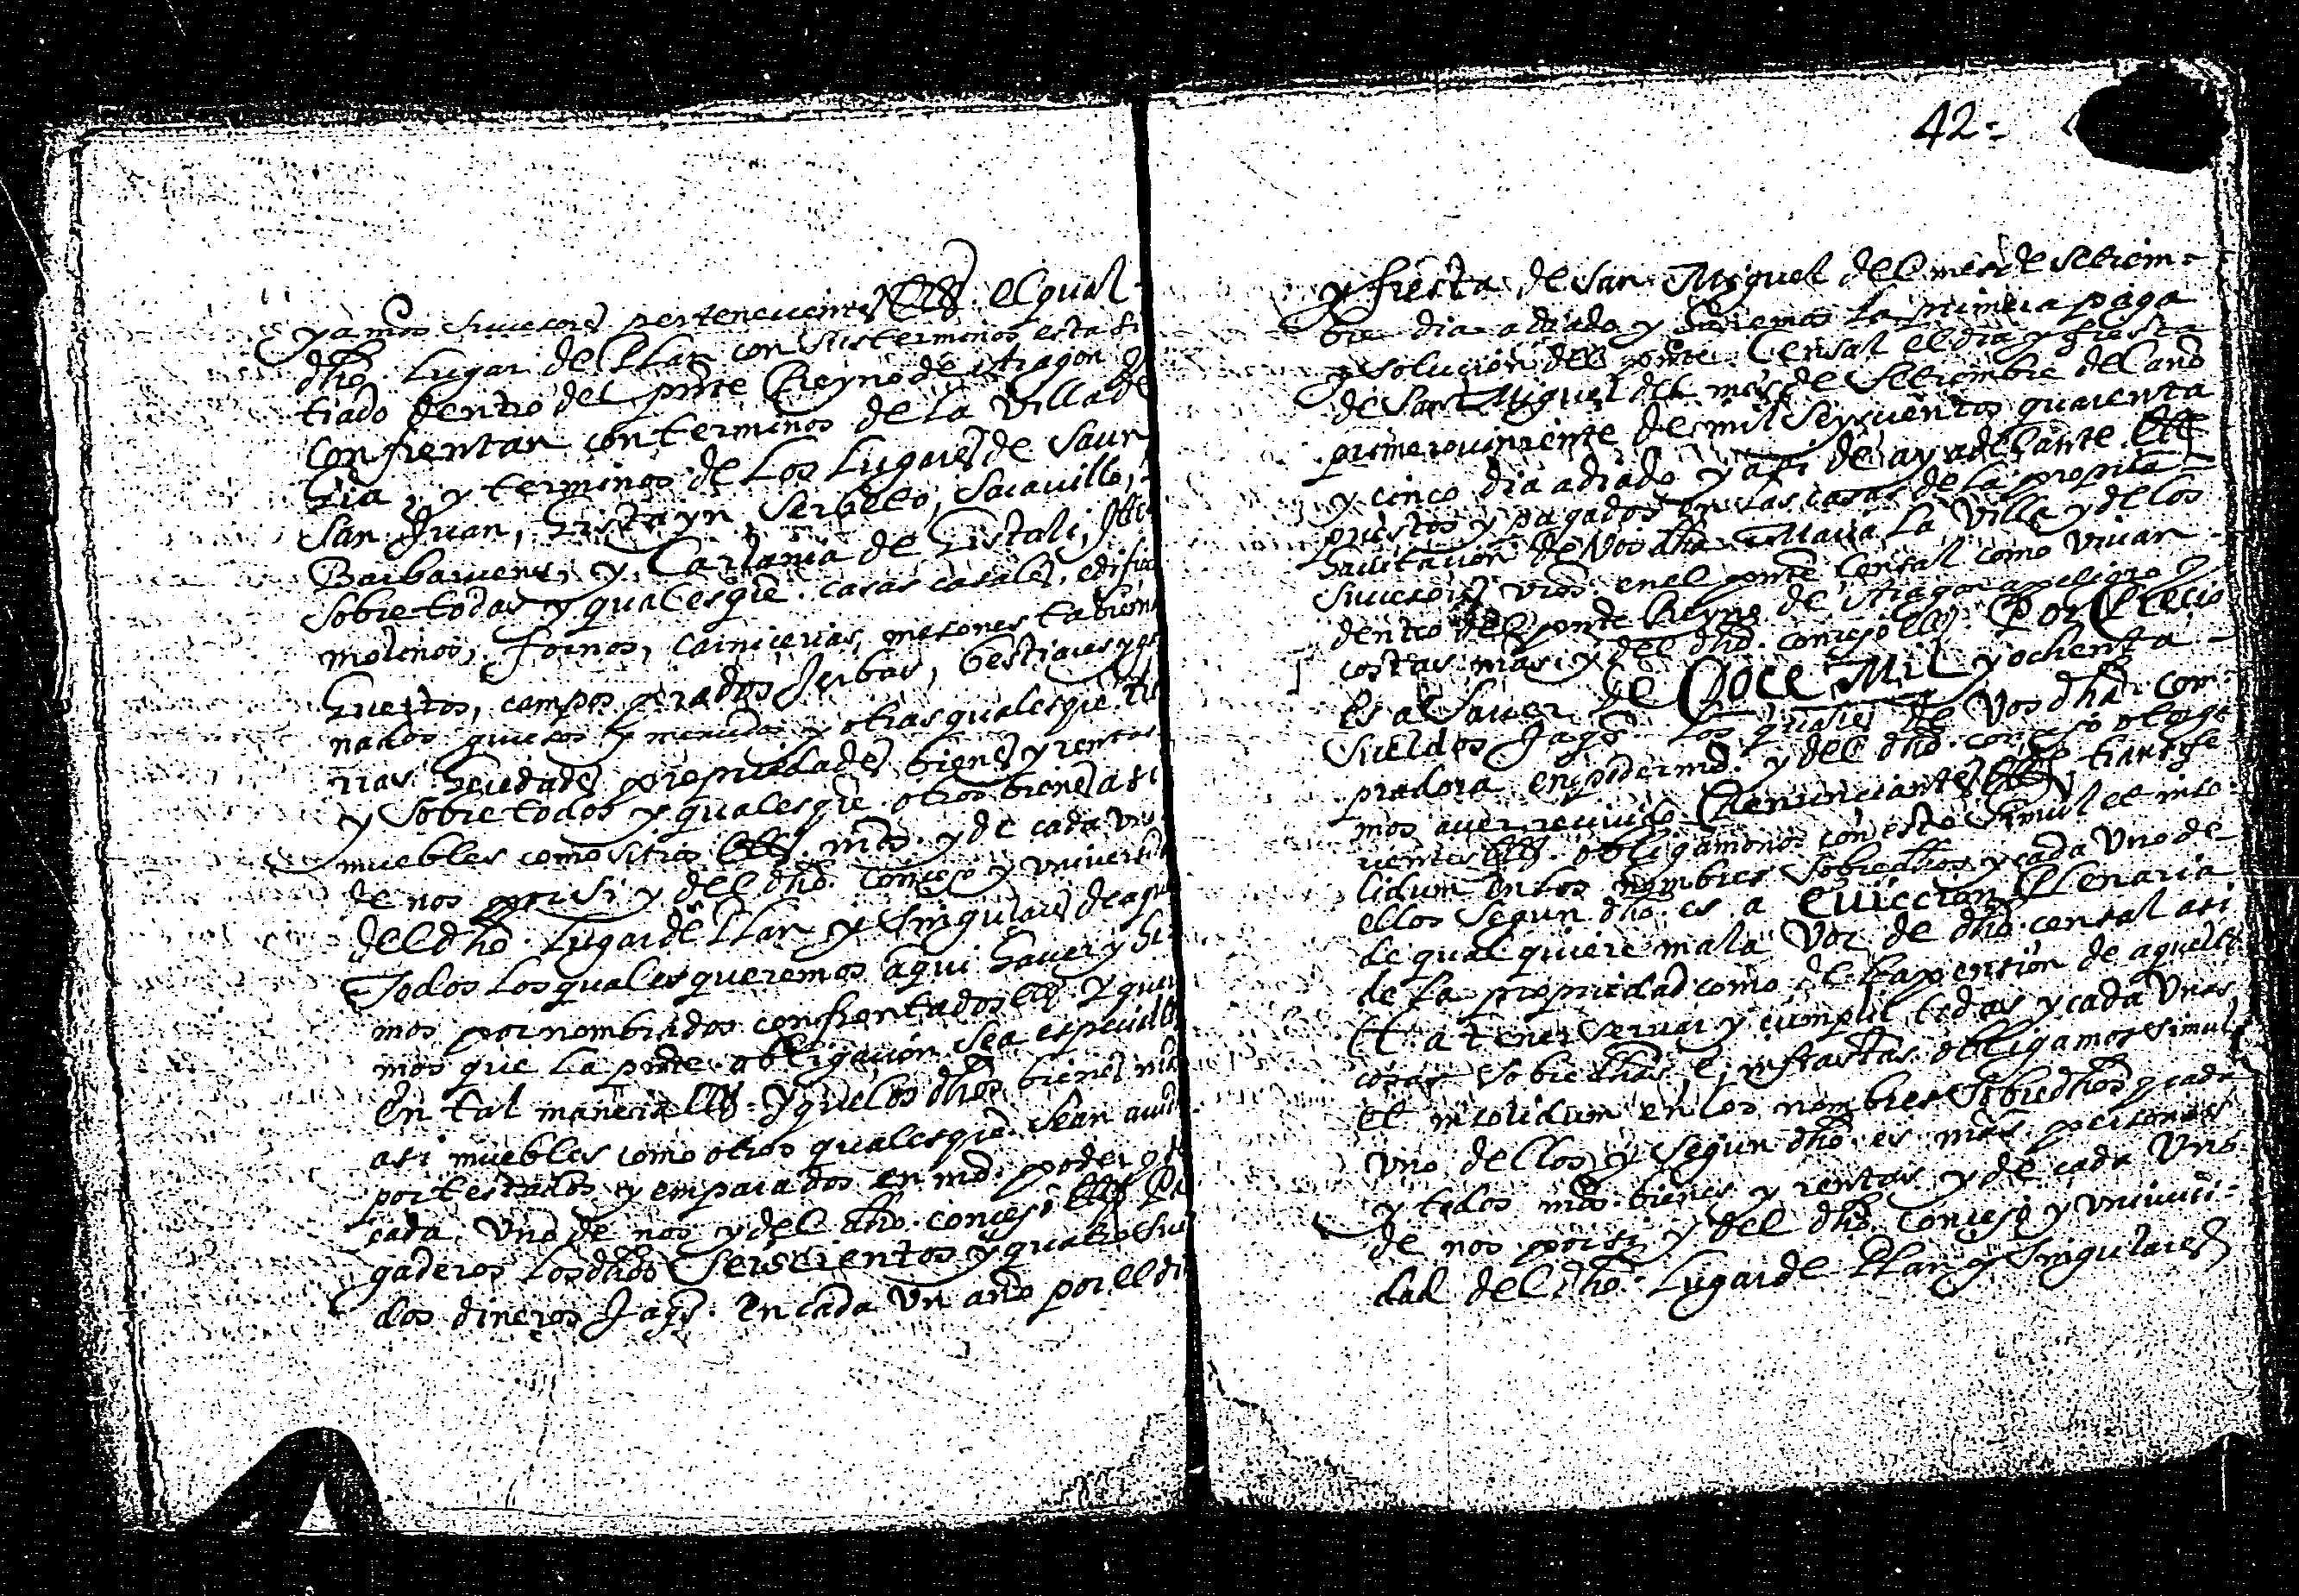 y a mos sucesores pertenecientes etc. el qual
dho. Lugar del Plan con sus terminos esta si
tiado dentro del pnte Reyno de Aragon y
confrentan con terminos de la Villa de
y terminos de Los Lugares de Saun
San Juan, Gistayn, Serbeto, Sarauillo,
y Carlania de Gistali, Itt
sobre todas y qualesqre. casas casales, edifici
molinos, fornos, carnicerias, mesones
Huertos, campos, prados Jerbas, bestiares y ga
nados gruesos y menudos y otras qualesqre.
rias Heredades propriedades bienes y rentas
y sobre todos y qualesqre. otros bienes asi
muebles como sitios etc. nros. y de cada vno
de nos por si y del dho. Concejo y vniversid
del dho. Lugar de Plan y Singulares de aque
Todos Los quales queremos aqui hauer y
mos por nombrados confrentados etc. y quere
mos que La pnte. obligacion sea especial
En tal manera etc. y que los dhos. bienes nros
asi muebles como otros qualesqre. sean
por testados y emparados en nro. poder y de
cada Vno de nos y del dho. concejo etc. Pa
gaderos Los dhos Seiscientos y quatro Suel
dos dineros Jaqs. En cada Vn año por el di
42=
y fiesta de San Miguel del mes de Setiem=
bre dia adiado y haremos La primera paga
y solucion del pnte. Censal el dia y fiesta
de San Miguel del mes de Setiembre del año
primero viniente de mil Seyscientos quarenta
y cinco dia adiado y assi de ay adelante etc
puestos y pagados en las casas de la propria
hauitacion de Vos dha Maria La Villa y de los
sucesores vros. en el pnte Censal como viuan
dentro del pnte Reyno de Aragon a peligro y
costas nras. y del dho. concejo etc. Por Precio
Es a Sauer de Doce Mil y ochenta
Sueldos Jaqs. Los quales de Vos dha. com
pradora en poder nro. y del dho. concejo otorga
mos auer reciuido Renunciantes etc. transfe
rientes etc. obligamonos con esto Simul et inso
lidum en los nombres sobredhos y cada Vno de
ellos segun dho. es a Euiccion Plenaria
de qualquiere mala Voz de dho. censal asi
de la propriedad como de la pension de aquel etc
Et a tener seruar y cumplir todas y cada Vnas
cosas sobredhas e infrastas obligamos simul
et insolidum en los nombres Sobredhos y cada
Vno dellos y segun dho. es nras. personas
y todos nros. bienes y rentas y de cada Vno
de nos por si y del dho. Concejo y vniuersi=
dad del dho. Lugar de Plan y Singulares